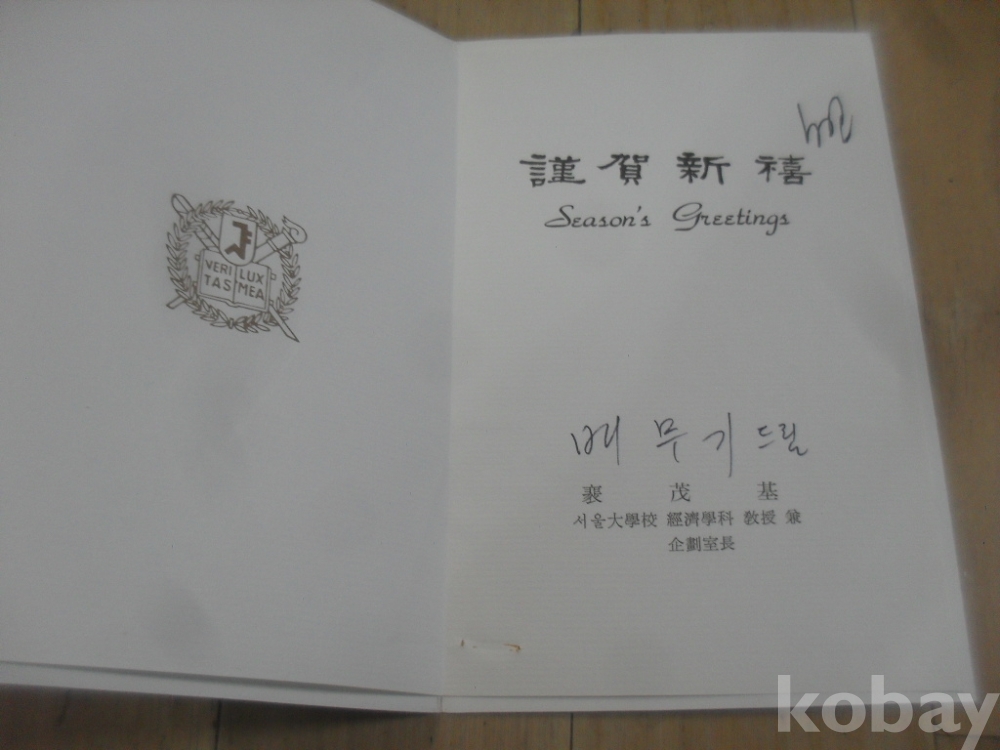 VERI LUX
TAS MEA
謹賀新禧
Season's Greetings
배 무 기 드림
裵 茂 基
서울大學校 經濟學科 教授 兼
企劃室長
kobay